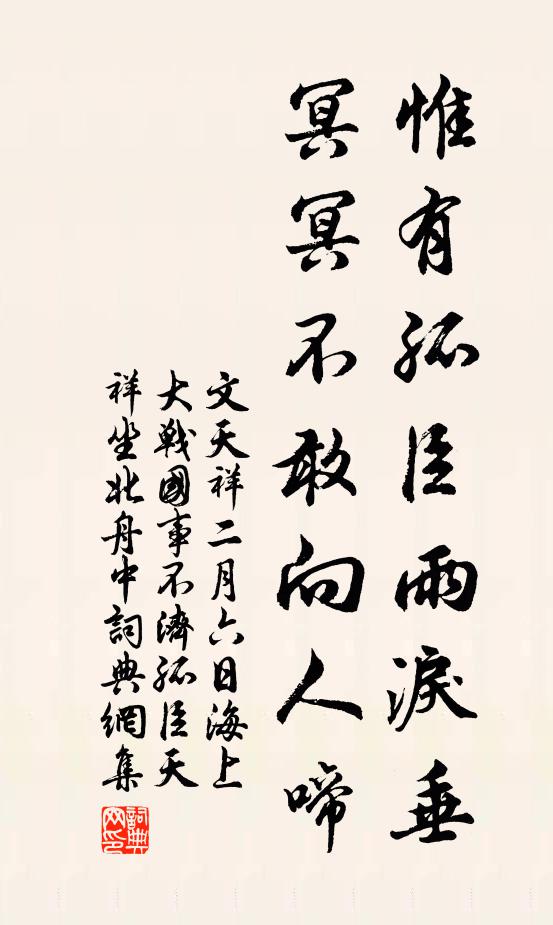 惟有孤臣雨淚垂
冥冥不敢向人啼
文天祥二月六日海上
大戰國事不濟孤臣天
祥坐北舟中詞典網集
詞典
网印